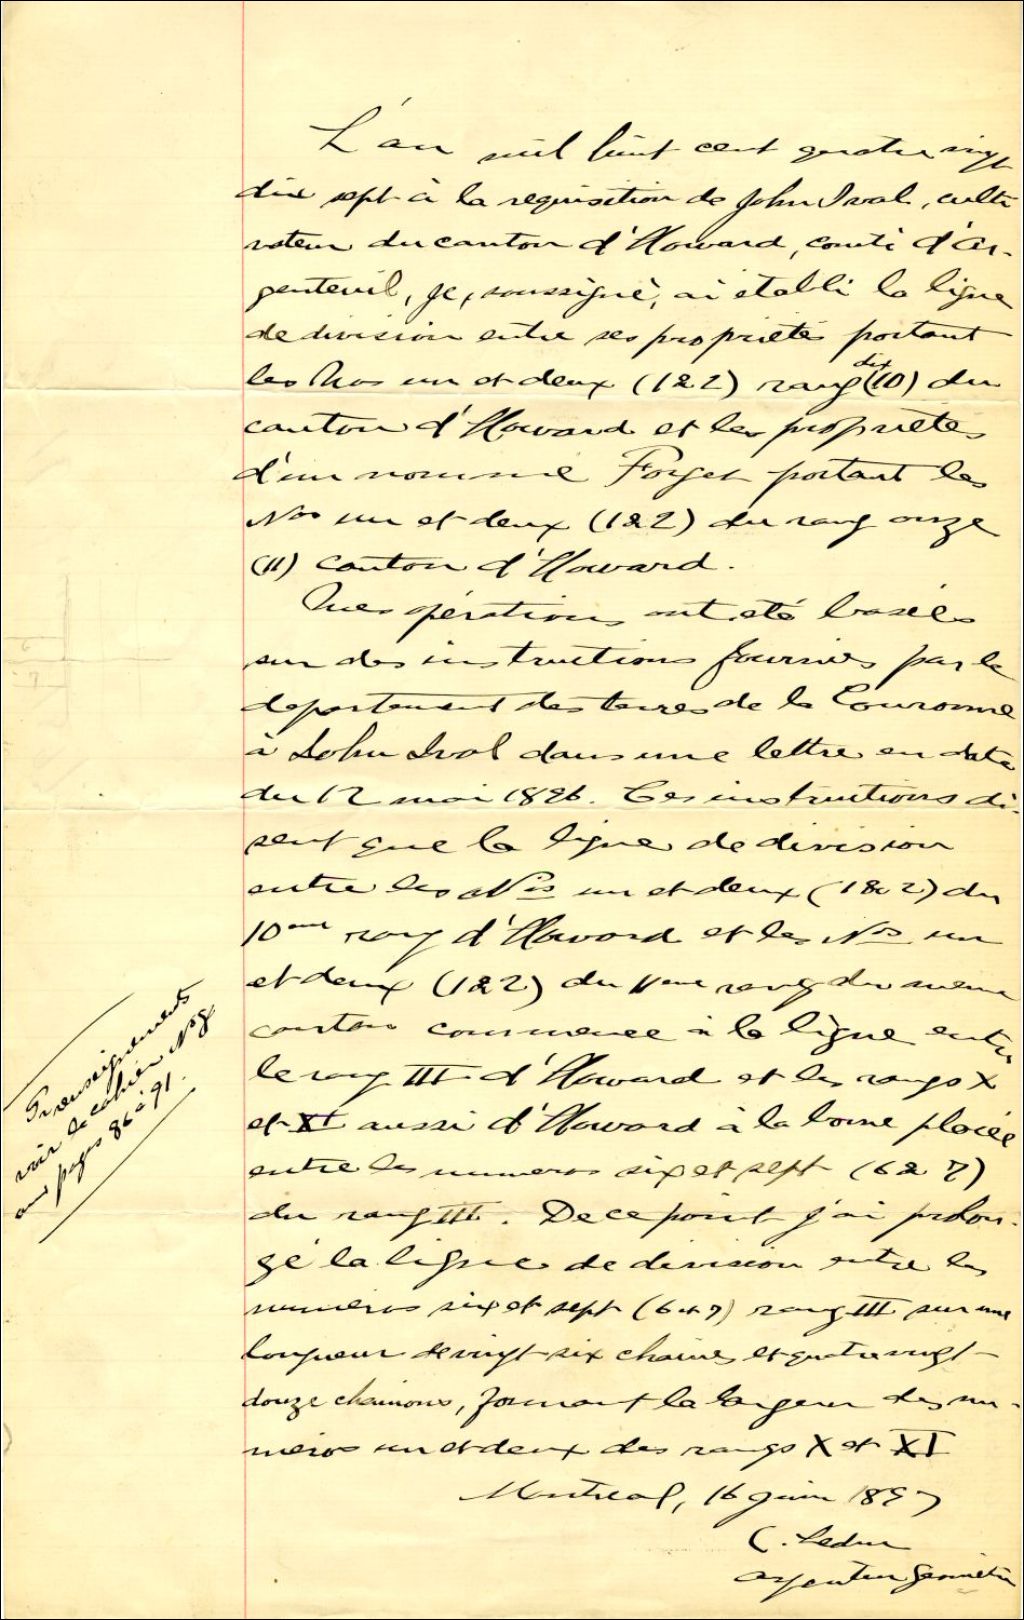 L'an mil huit cent quatre vingt
dix sept à la requisition de John Ival, culti
vateur du canton d'Howard, comté d'Ar-
genteuil, je, soussigné, ai établi la ligne
de division entre ses propriétés portant
les Nos un et deux (1 & 2) rang dix (10) du
canton d'Howard et les propriétés
d'un nommé Forget portant les
Nos un et deux (1 & 2) du rang onze
(11) canton d'Howard.
Mes opérations ont été basées
sur des instructions fournies par le
departement des terres de la Couronne
à John Ival dans une lettre en date
du 12 mai 1896. Ces instructions di-
sent que la ligne de division
entre les Nos un et deux (1 & 2) du
10eme rang d'Howard et les Nos un
et deux (1 & 2) du 11eme rang du meme
canton commence à la ligne entre
le rang III d'Howard et les rangs X
et XI aussi d'Howard à la borne placée
entre les numeros six et sept (6 & 7)
du rang III. De ce point j'ai prolon-
gé la ligne de division entre les
numéros six et sept (6 et 7) rang III sur une
longueur de vingt-six chaines et quatre vingt-
douze chainons, formant la largeur des nu-
méros un et deux des rangs X et XI
Montreal, 16 juin 1897
C. Leduc
Arpenteur Géomètre
Renseignements
voir le cahier No 8
aux pages 86 à 91.
6
7